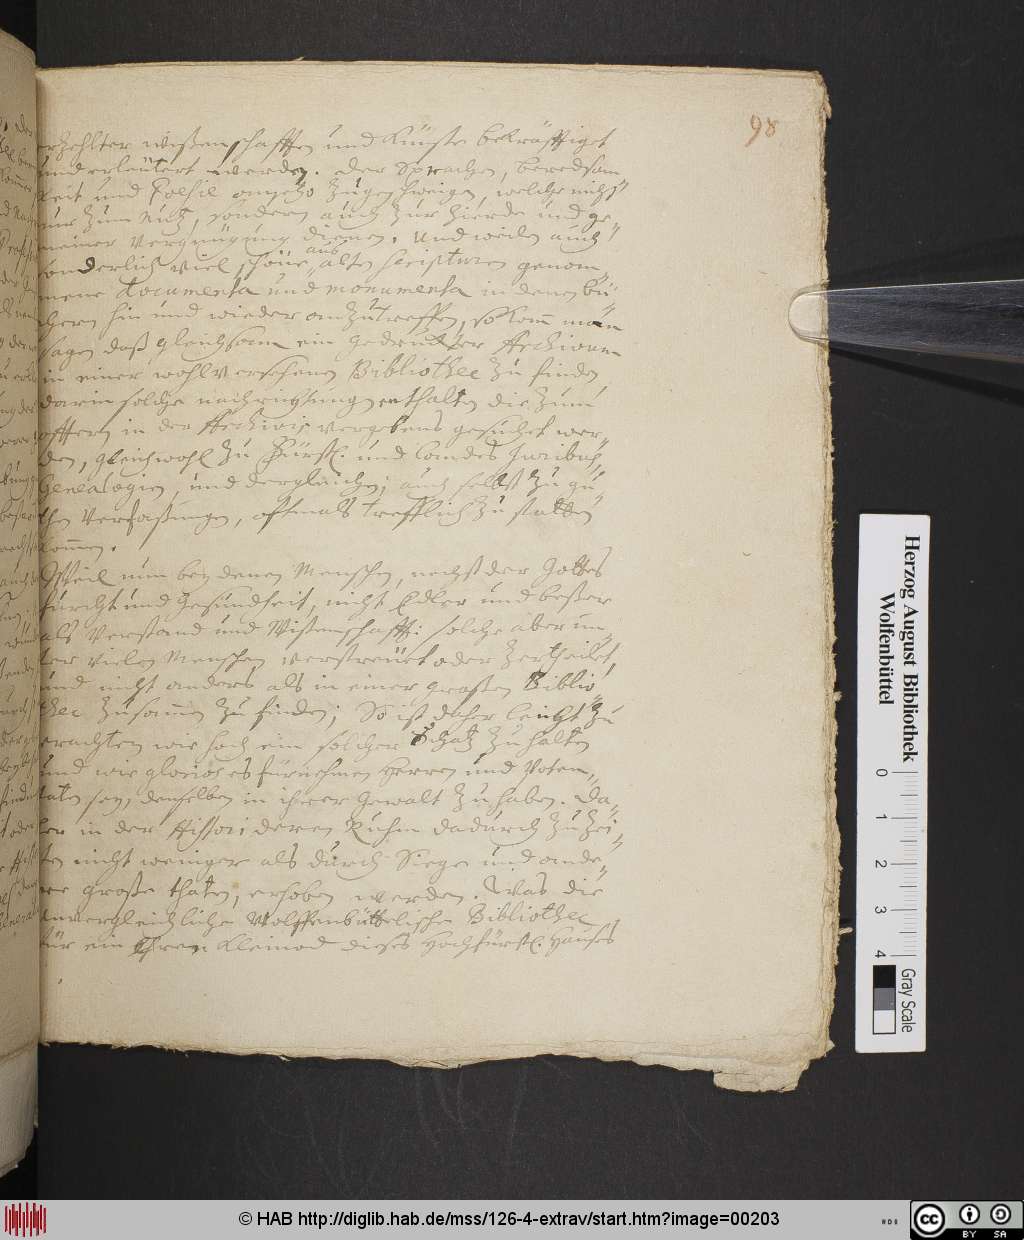 98
erzehlter wißenschafften und Künste bekräfftiget
und erleutert werden. Der Sprachen, beredsam
keit und Poesie anjezo zugeschweigen, welche nicht
nur zum Nuz, sondern auch zur Zierde und ge-
meiner Vergnügung dienen. Und weilen auch
sonderlich viel schöne aus alten Scripturen genom-
mene Documenta und monumenta in denen bü-
chern hin und wieder anzutreffen, so kann man
sagen daß gleichsam ein gedruckter Archivum
in einer wohlversehenen Bibliothec zu finden
darin solche nachrichtungen enthalten die zum
öfftern in der Archivis vergebens gesuchet wer-
den, gleichwohl zu Fürstl. und Landes Juribus,
Genealogien, und dergleichen; auch selbst zu gu-
then Verfaßungen, oftmals trefflich zu statten
kommen.
Weil nun bey denen Menschen, nechst der Gottes
furcht und Gesundheit, nicht Edler und beßer
als Verstand und Wißenschafft: solche aber un-
ter vielen Menschen verstreuet oder zertheilet,
und nicht anders als in einer großen Biblio-
thec zusammen zu finden; So ist daher leicht zu
erachten wie hoch ein solcher Schatz zu halten
und wie glorios es fürnehmen Herren und Poten-
taten sey, denselben in ihrer Gewalt zu haben. Da-
her in der Histori deren Ruhm dadurch zu Zei-
ten nicht weniger als durch Siege und ande-
re große thaten, erhoben werden. Was die
unvergleichliche Wolffenbüttelische Bibliothec
für ein Ehren Kleinod dieses Hochfürstl. Hauses
Herzog August Bibliothek
Wolfenbüttel
0 1 2 3 4
Gray Scale
© HAB http://diglib.hab.de/mss/126-4-extrav/start.htm?image=00203
cc BY SA